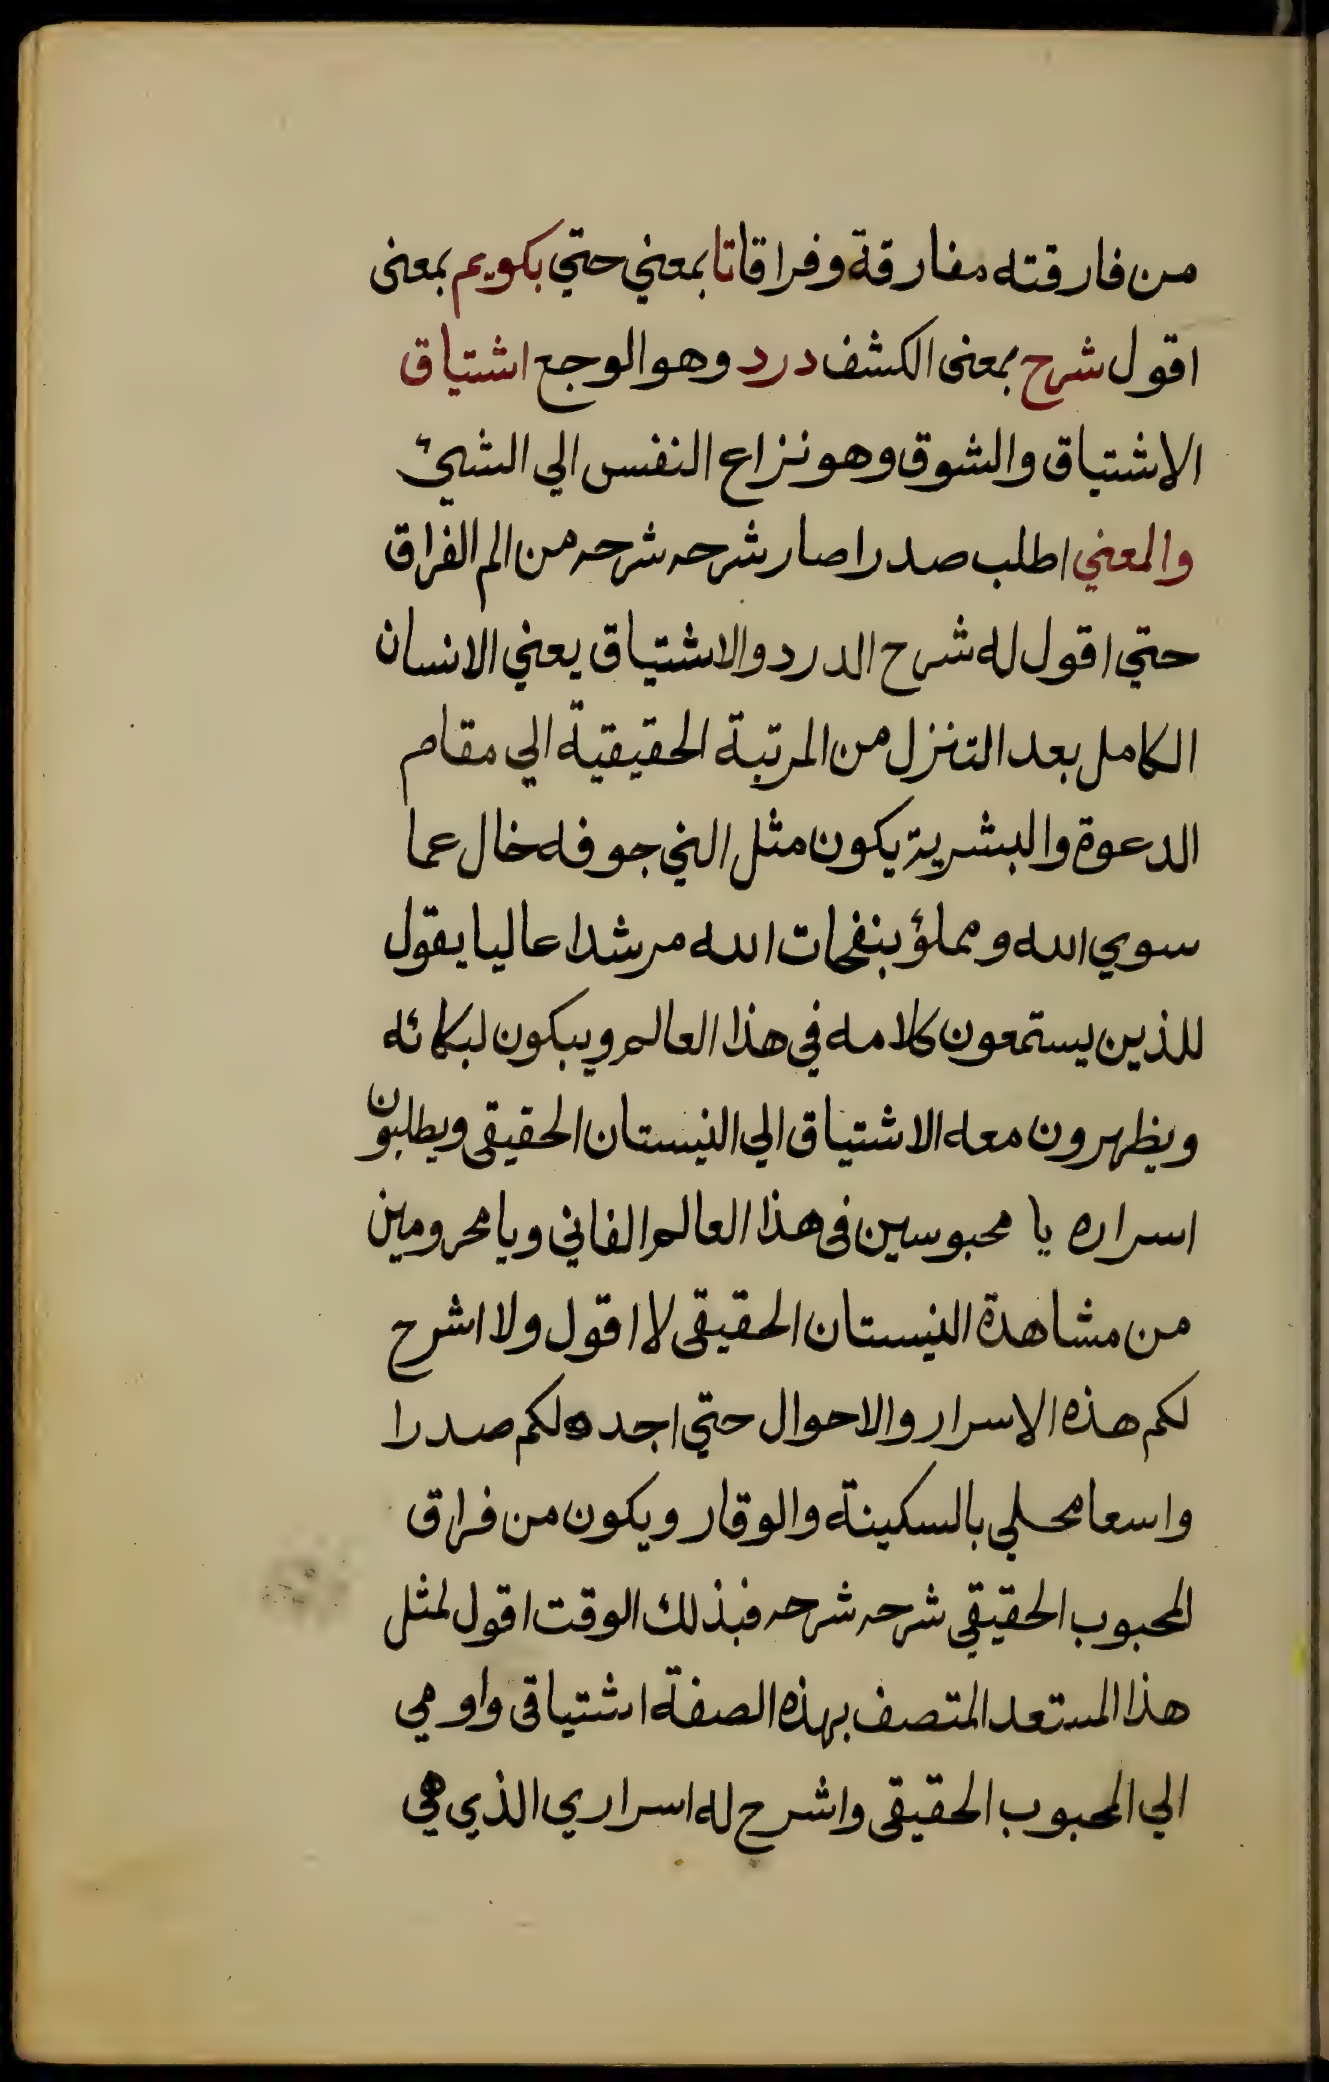 من فارقته مفارقة وفراقا تا بمعني حتي بكويم بمعنى
اقول شرح بمعنى الكشف درد وهو الوجع اشتياق
الاشتياق والشوق وهو نزاع النفس الي الشيئ
والمعني اطلب صدرا صار شرحه شرحه من الم الفراق
حتي اقول له شرح الدرد والاشتياق يعني الانسان
الكامل بعد التنزل من المرتبة الحقيقية الي مقام
الدعوة والبشرية يكون مثل الني جوفه خال عما
سوي الله ومملؤ بنفحات الله مرشدا عاليا يقول
للذين يستمعون كلامه في هذا العالم ويبكون لبكائه
ويظهرون معه الاشتياق الي النيستان الحقيقي ويطلبون
اسراره يا محبوسين في هذا العالم الفاني ويا محرومين
من مشاهدة النيستان الحقيقي لا اقول ولا اشرح
لكم هذه الاسرار والاحوال حتي اجد لكم صدرا
واسعا محلي بالسكينة والوقار ويكون من فراق
المحبوب الحقيقي شرحه شرحه فبذلك الوقت اقول لمثل
هذا المستعد المتصف بهذه الصفة اشتياقي واومي
الي المحبوب الحقيقي واشرح له اسراري الذي هي